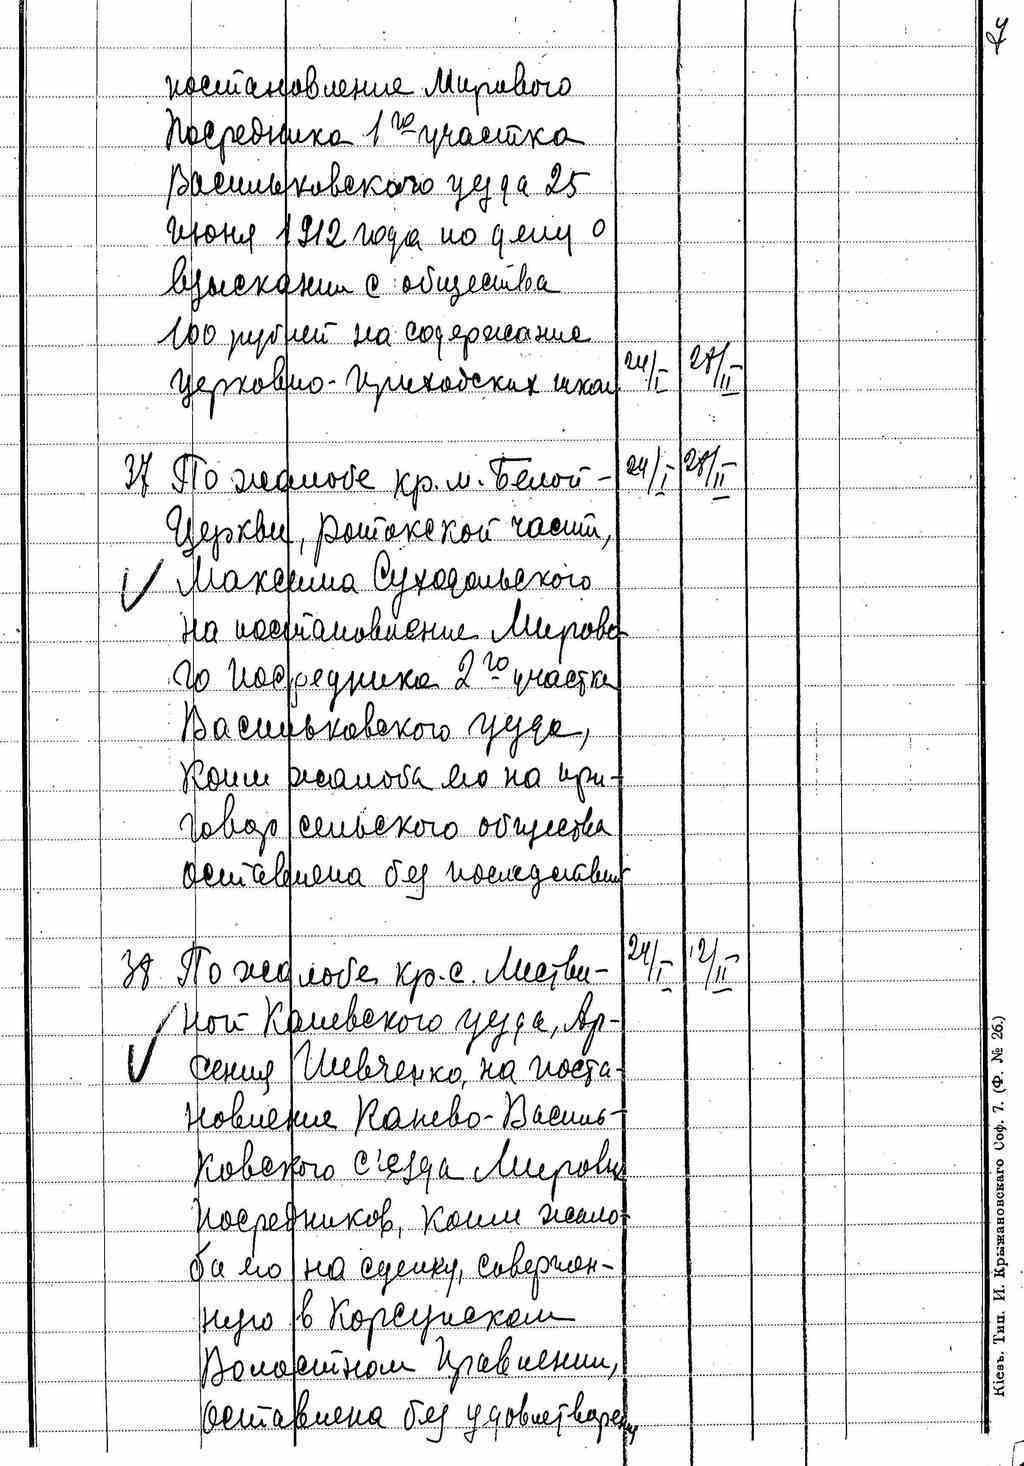 7
постановление Мирового
Посредника 1го участка
Васильковского уезда 25
июня 1912 года по делу о
взыскании с общества
100 рублей на содержание
церковно-приходских школ 24/I 27/II
37 По жалобе кр. м. Белой- 24/I 28/II
Церкви, ротокской части,
Максима Суходольского
на постановление Мирово-
го Посредника 2го участка
Васильковского уезда,
коим жалоба его на при-
говор сельского общества
оставлена без последствий
38 По жалобе кр. с. Листви- 24/I 12/II
ной Каневского уезда, Ар-
сения Шевченко, на поста-
новление Канево-Василь-
ковского с'езда Мировых
Посредников, коим жало-
ба его на сделку, совершен-
ную в Корсунском
Волостном Правлении,
оставлена без удовлетворения
Кіевъ. Тип. И. Крыжановскаго Соф. 7. (Ф. № 26.)